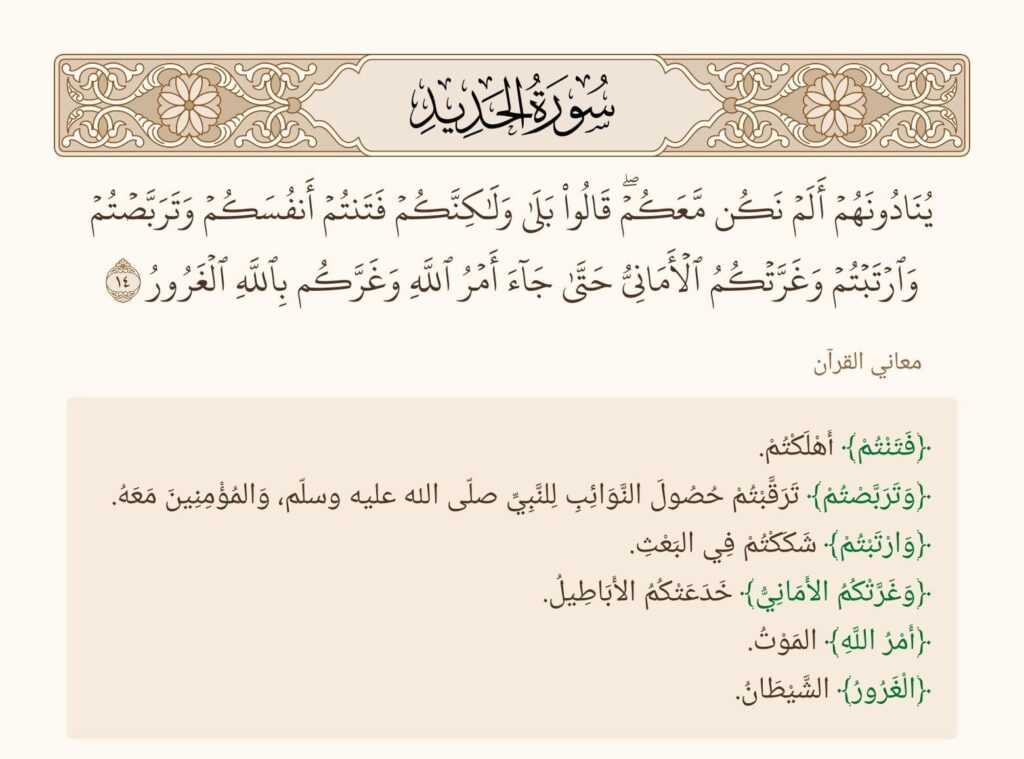 سُورَةُ الحَدِيدِ
يُنَادُونَهُمۡ أَلَمۡ نَكُن مَّعَكُمۡۖ قَالُواْ بَلَىٰ وَلَٰكِنَّكُمۡ فَتَنتُمۡ أَنفُسَكُمۡ وَتَرَبَّصۡتُمۡ
وَٱرۡتَبۡتُمۡ وَغَرَّتۡكُمُ ٱلۡأَمَانِيُّ حَتَّىٰ جَآءَ أَمۡرُ ٱللَّهِ وَغَرَّكُم بِٱللَّهِ ٱلۡغَرُورُ ١٤
معاني القرآن
﴿فَتَنْتُمْ﴾ أَهْلَكْتُمْ.
﴿وَتَرَبَّصْتُمْ﴾ تَرَقَّبْتُمْ حُصُولَ النَّوَائِبِ لِلنَّبِيِّ صلّى الله عليه وسلّم، وَالمُؤْمِنِينَ مَعَهُ.
﴿وَارْتَبْتُمْ﴾ شَكَكْتُمْ فِي البَعْثِ.
﴿وَغَرَّتْكُمُ الأَمَانِيُّ﴾ خَدَعَتْكُمُ الأَبَاطِيلُ.
﴿أَمْرُ اللَّهِ﴾ المَوْتُ.
﴿الْغَرُورُ﴾ الشَّيْطَانُ.